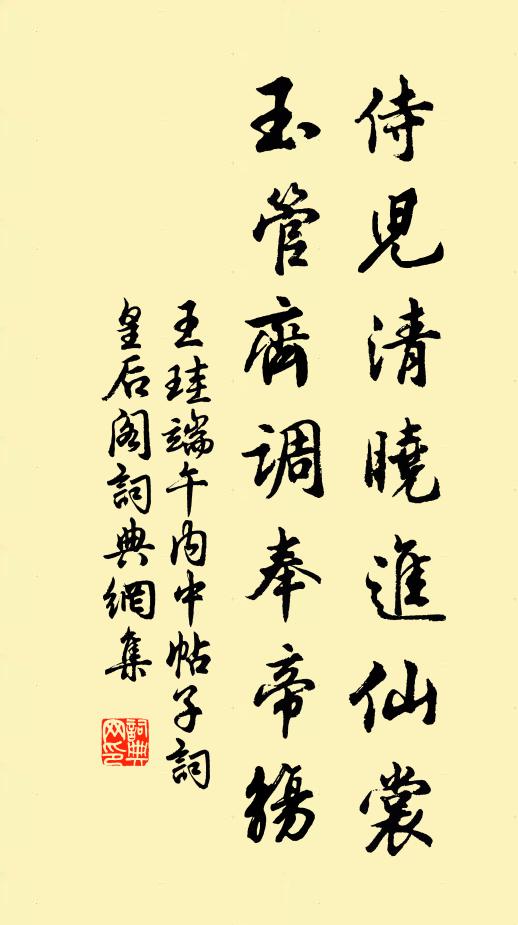 侍兒清曉進仙裳
玉管齊調奉帝觴
王珪端午內中帖子詞
皇后閣詞典網集
詞典網印